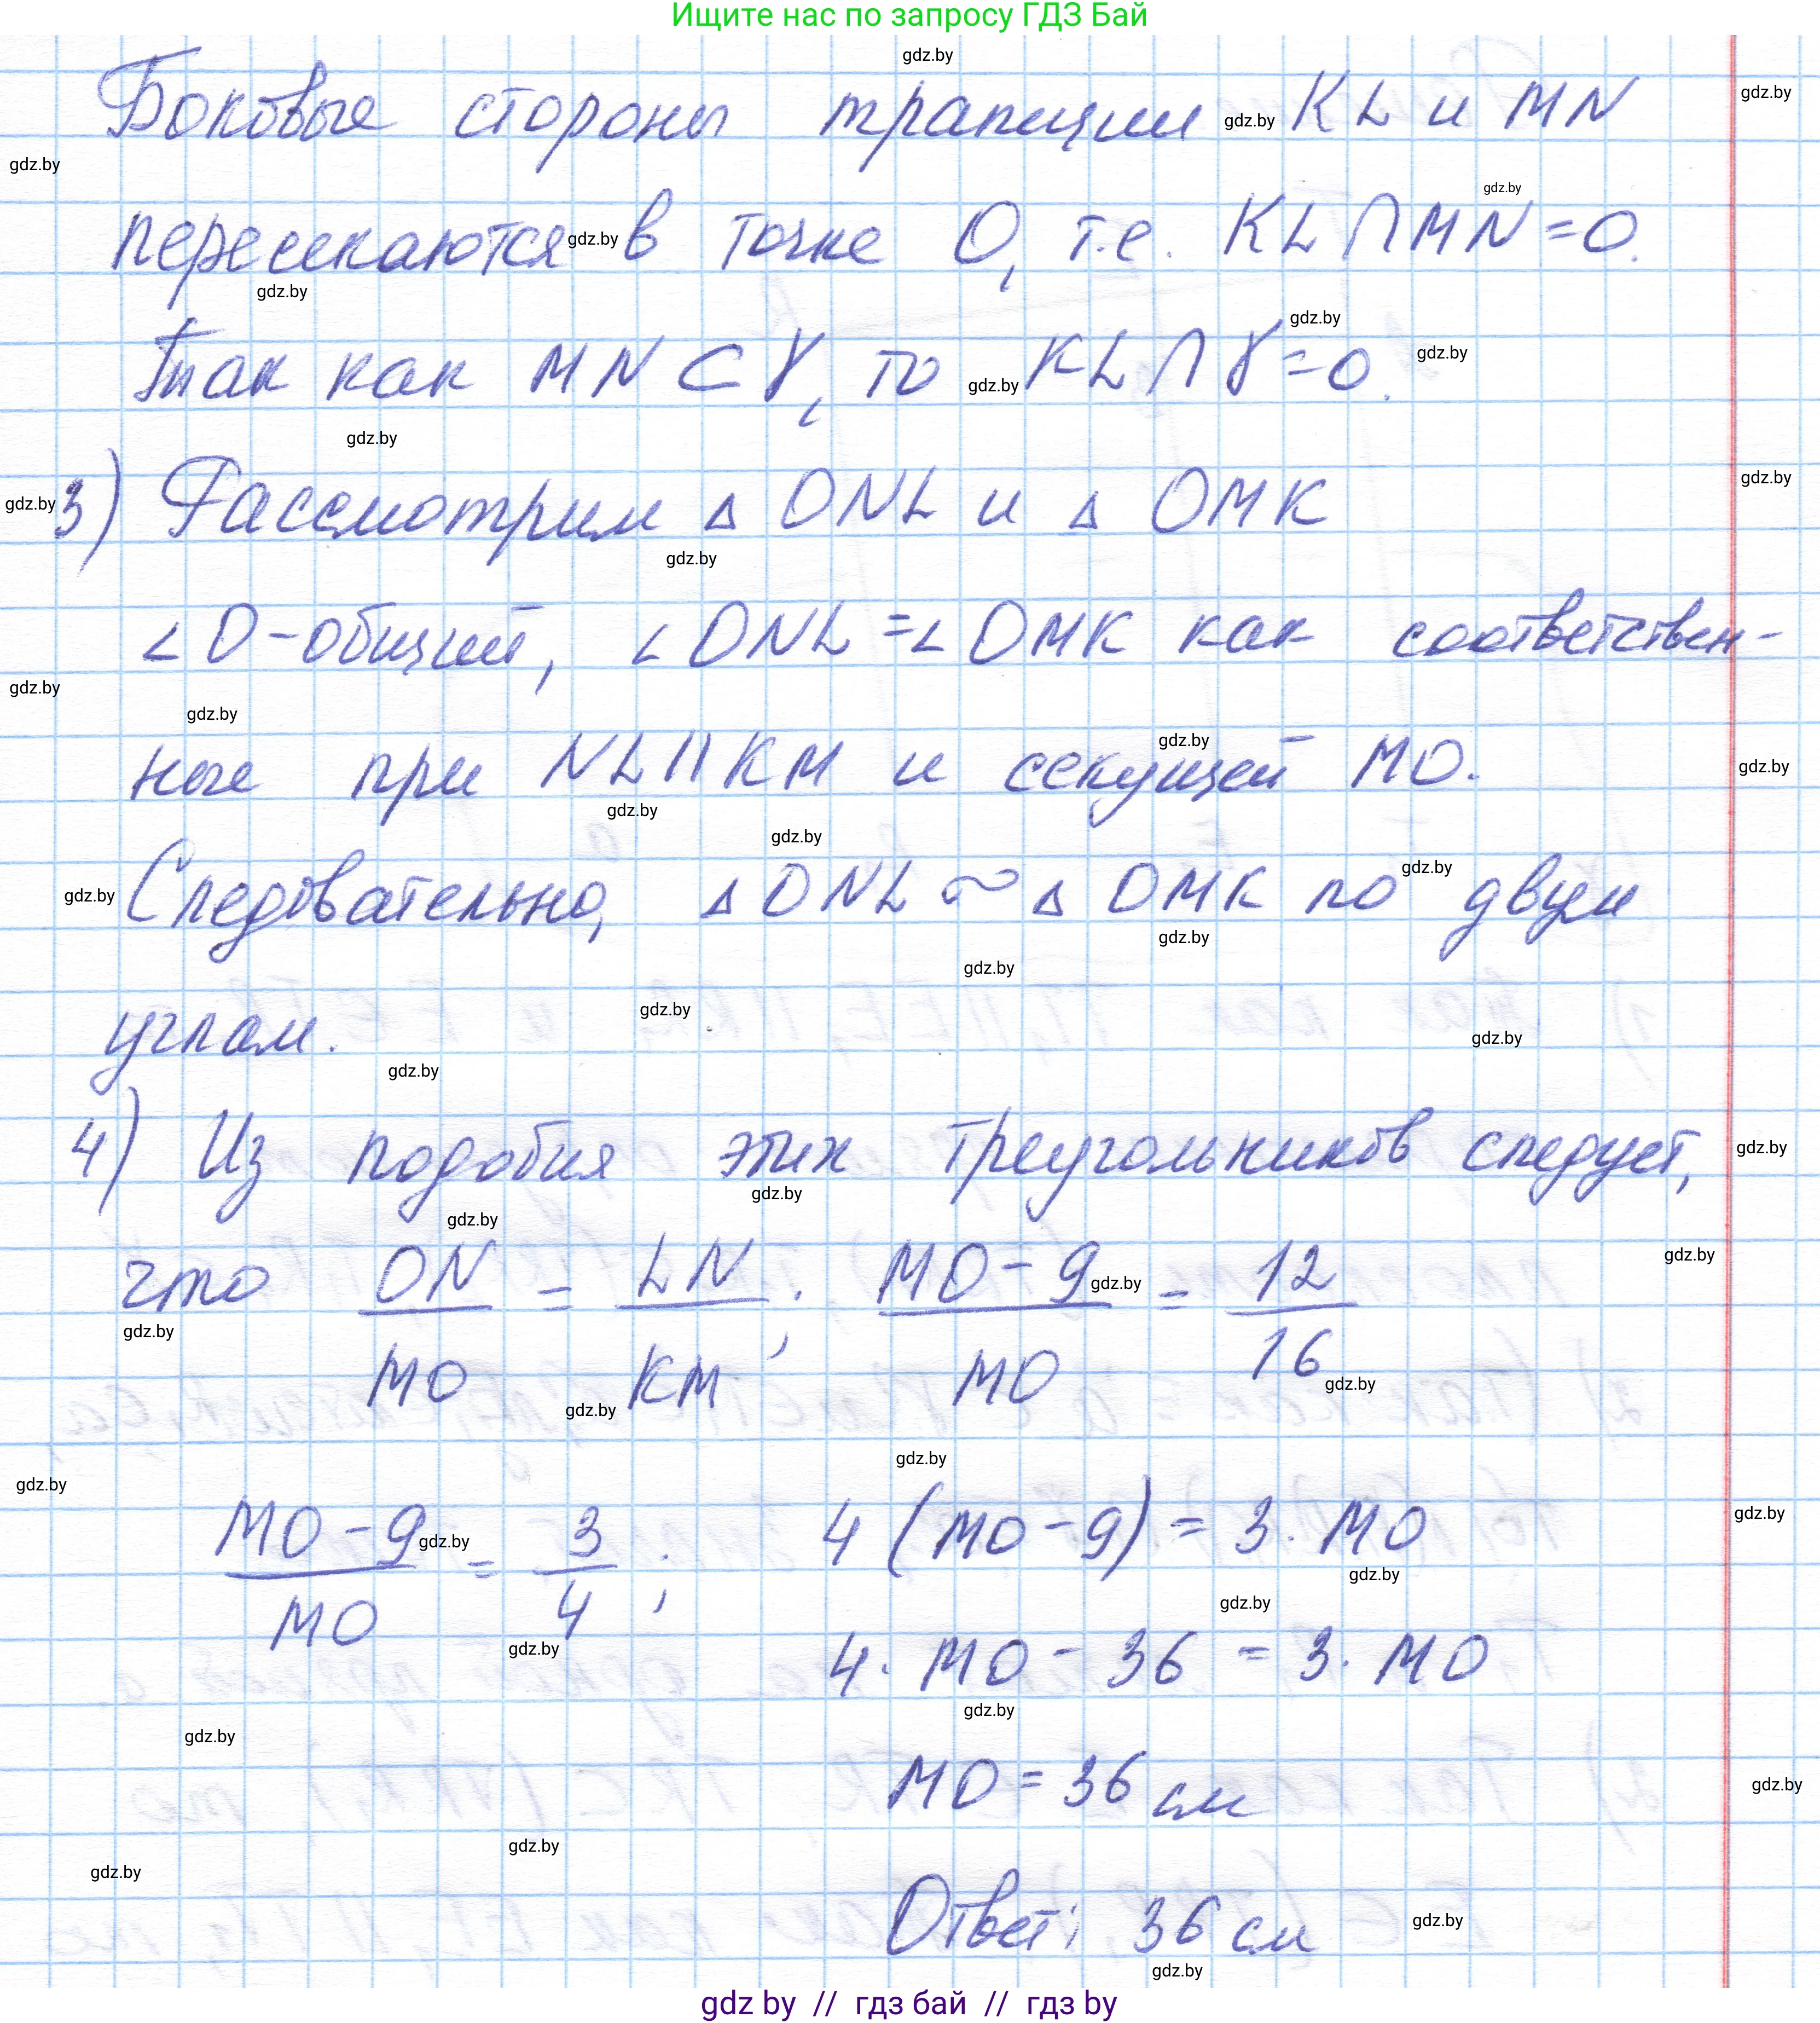 Ищите нас по запросу ГДЗ Бай
gdz.by
Боковые стороны трапеции KL и MN
gdz.by gdz.by
gdz.by
gdz.by
пересекаются в точке O, т.е. KL∩MN=O.
gdz.by
gdz.by
gdz.by
Так как MN⊂γ, то KL∩γ=O.
gdz.by gdz.by
gdz.by
gdz.by
3) Рассмотрим △ ONL и △ OMK
gdz.by
gdz.by
∠O-общий, ∠ONL=∠OMK как соответствен-
gdz.by
gdz.by
gdz.by
ные при NL||KM и секущей MO.
gdz.by
gdz.by
gdz.by
gdz.by
Следовательно, △ONL ∼ △ OMK по двум
gdz.by
gdz.by
gdz.by
gdz.by
углам.
gdz.by
gdz.by
4) Из подобия этих треугольников следует,
gdz.by
gdz.by
gdz.by
что ON/MO = LN/KM; MO-9/MO = 12/16
gdz.by
gdz.by
gdz.by
gdz.by
gdz.by
gdz.by
gdz.by
MO-9/MO = 3/4; 4(MO-9)=3·MO
gdz.by
gdz.by
gdz.by
gdz.by
gdz.by
4·MO-36=3·MO
gdz.by
gdz.by
MO=36 см
gdz.by
gdz.by
gdz.by
Ответ: 36 см
gdz.by
gdz.by
gdz by // гдз бай // гдз by